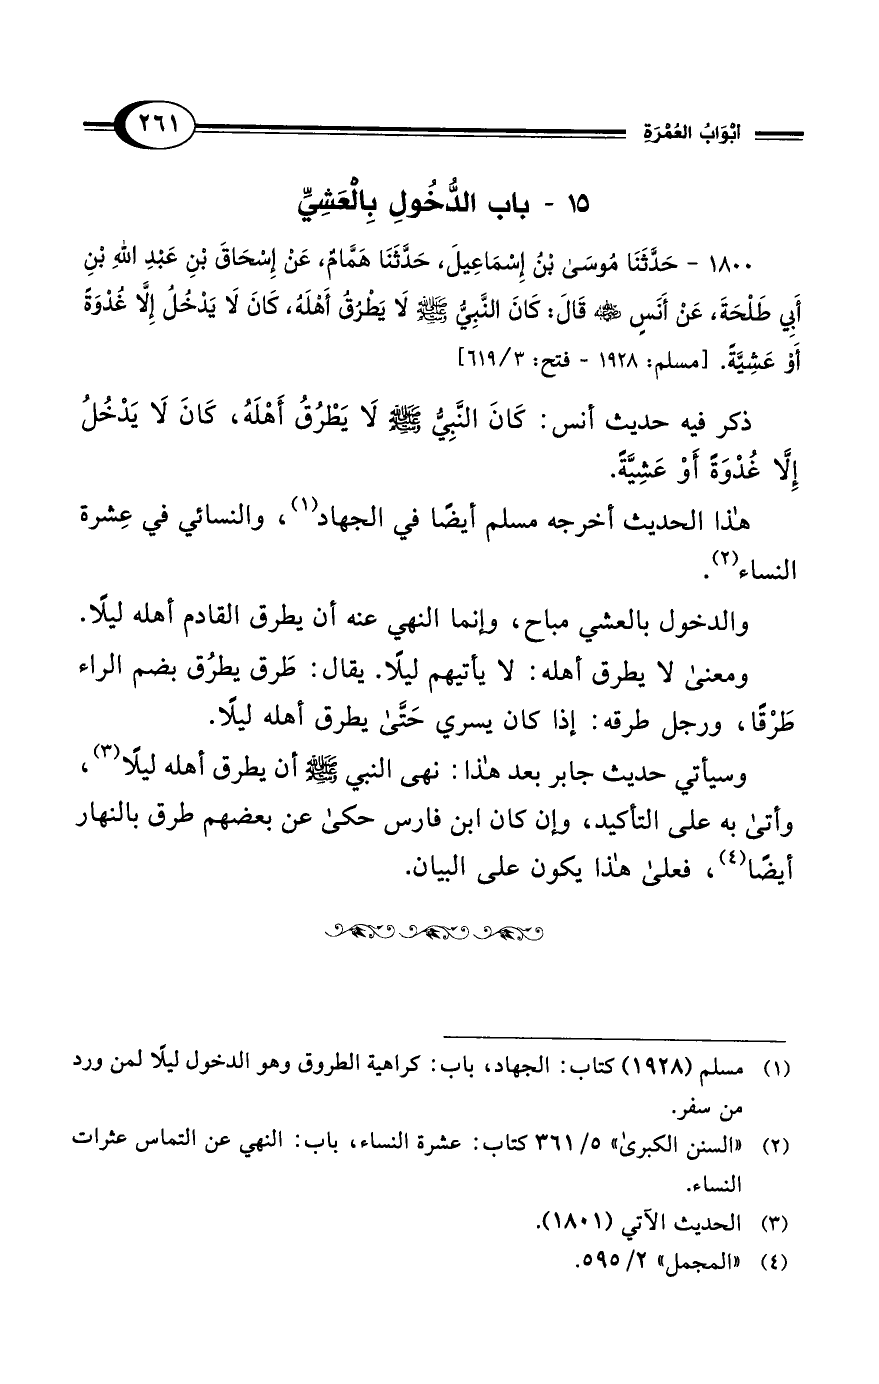 أبْوَابُ العُمْرَةِ
٢٦١
١٥ - باب الدُّخُولِ بِالْعَشِيِّ
١٨٠٠ - حَدَّثَنَا مُوسَىٰ بْنُ إِسْمَاعِيلَ، حَدَّثَنَا هَمَّامٌ، عَنْ إِسْحَاقَ بْنِ عَبْدِ اللهِ بْنِ
أَبِي طَلْحَةَ، عَنْ أَنَسٍ ﷺ قَالَ: كَانَ النَّبِيُّ ﷺ لَا يَطْرُقُ أَهْلَهُ، كَانَ لَا يَدْخُلُ إِلَّا غُدْوَةً
أَوْ عَشِيَّةً. [مسلم: ١٩٢٨ - فتح: ٣/ ٦١٩]
ذكر فيه حديث أنس: كَانَ النَّبِيُّ ﷺ لَا يَطْرُقُ أَهْلَهُ، كَانَ لَا يَدْخُلُ
إِلَّا غُدْوَةً أَوْ عَشِيَّةً.
هٰذا الحديث أخرجه مسلم أيضًا في الجهاد(١)، والنسائي في عِشرة
النساء(٢).
والدخول بالعشي مباح، وإنما النهي عنه أن يطرق القادم أهله ليلًا.
ومعنىٰ لا يطرق أهله: لا يأتيهم ليلًا. يقال: طَرق يطرُق بضم الراء
طَرْقًا، ورجل طرقه: إذا كان يسري حَتَّىٰ يطرق أهله ليلًا.
وسيأتي حديث جابر بعد هٰذا: نهى النبي ﷺ أن يطرق أهله ليلًا(٣)،
وأتىٰ به على التأكيد، وإن كان ابن فارس حكىٰ عن بعضهم طرق بالنهار
أيضًا(٤)، فعلىٰ هٰذا يكون على البيان.
(١) مسلم (١٩٢٨) كتاب: الجهاد، باب: كراهية الطروق وهو الدخول ليلًا لمن ورد
من سفر.
(٢) «السنن الكبرىٰ» ٥/ ٣٦١ كتاب: عشرة النساء، باب: النهي عن التماس عثرات
النساء.
(٣) الحديث الآتي (١٨٠١).
(٤) «المجمل» ٢/ ٥٩٥.